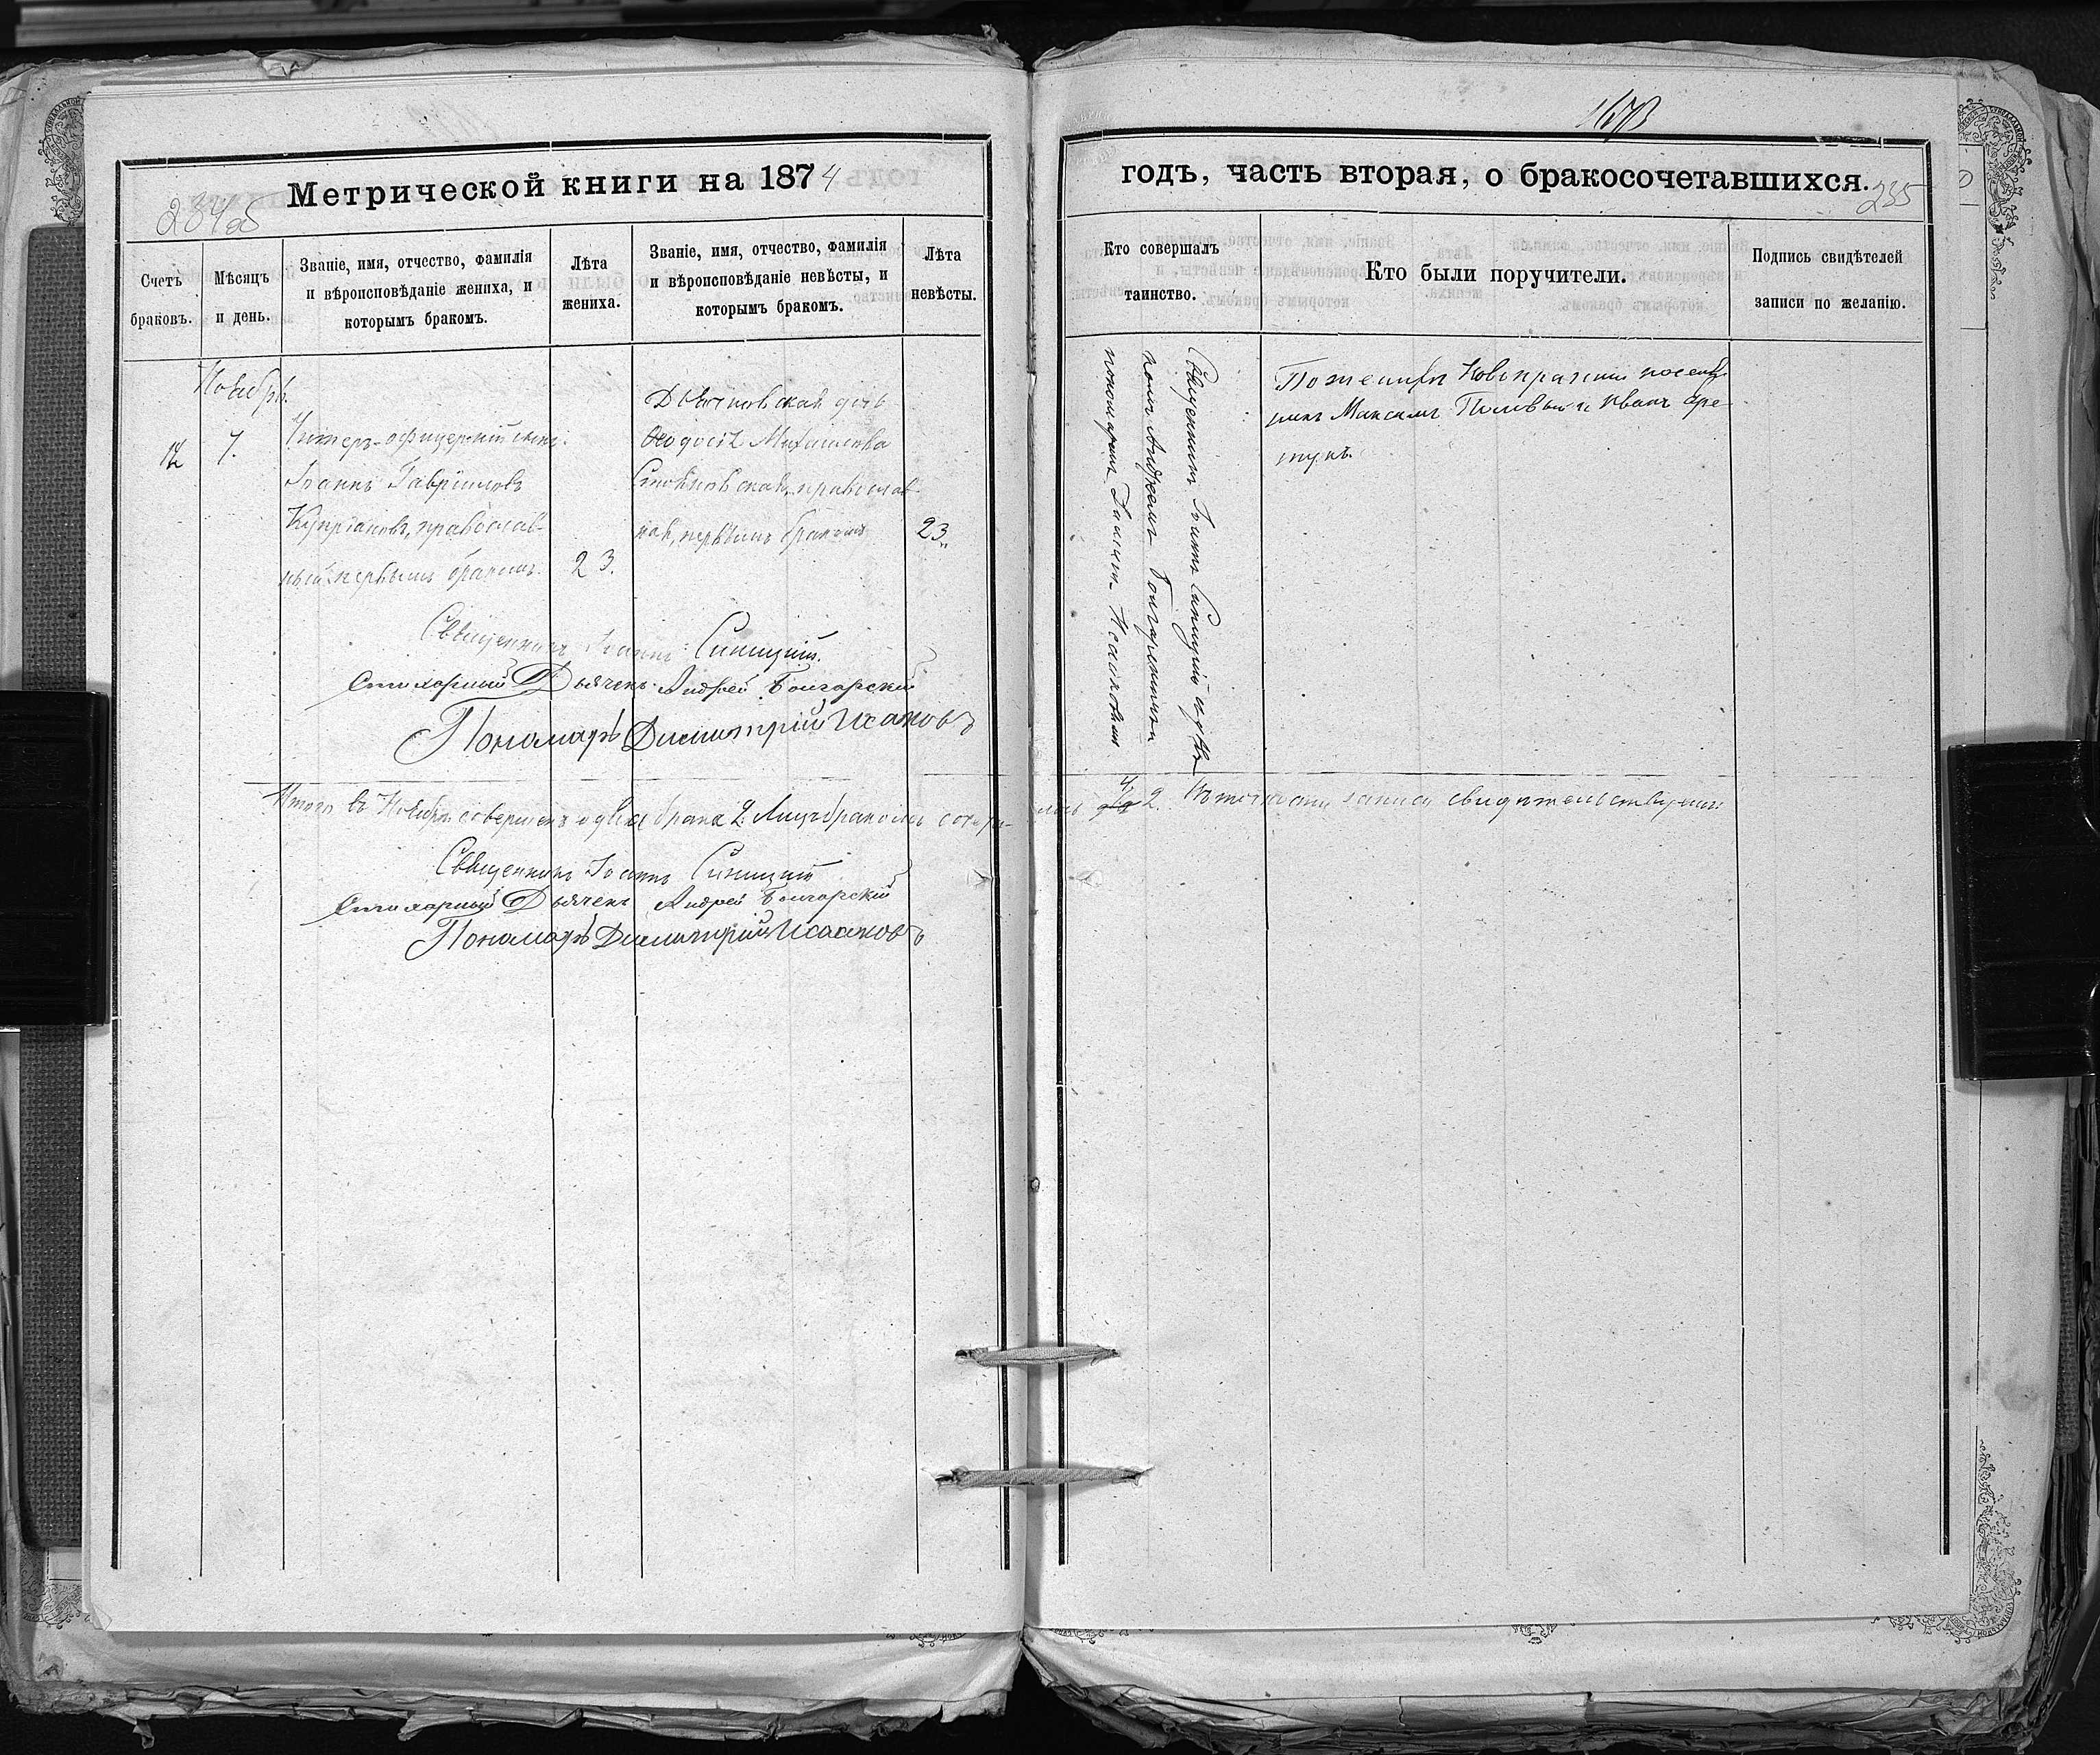 Метрической книги на 1874
234об
Счетъ браковъ.
Мѣсяцъ и день.
Званіе, имя, отчество, фамилія
и вѣроисповѣданіе жениха, и
которымъ бракомъ.
Лѣта
жениха.
Званіе, имя, отчество, фамилія
и вѣроисповѣданіе невѣсты, и
которымъ бракомъ.
Лѣта
невѣсты.
Ноябрь.
12
7.
Унтеръ-офицерскій сынъ
Іоаннъ Гавріиловъ
Купріановъ, православ-
ный первымъ бракомъ.
23.
дочь
Ѳеодосія Михаилова
православ-
ная, первымъ бракомъ
23
Священникъ Іоаннъ Синицкій.
Стихарный Дьячекъ Андрей Болгарскій
Пономарь Димитрій Исаковъ
Итого въ Ноябрѣ совершено два брака 2. Лицъ бракомъ
Священникъ Іоаннъ Синицкій
Стихарный Дьячекъ Андрей Болгарскій
Пономарь Димитрій Исааковъ
годъ, часть вторая, о бракосочетавшихся.
235
Кто совершалъ
таинство.
Кто были поручители.
Подпись свидѣтелей
записи по желанію.
Священникъ Іоаннъ Синицкій и дьяч-
комъ Андреемъ Болгарскимъ и
пономаремъ Исааковымъ
По женихѣ Новопражскій поселя-
нинъ Максимъ и Иванъ
4/2. Въ точности записи свидѣтельствуемъ